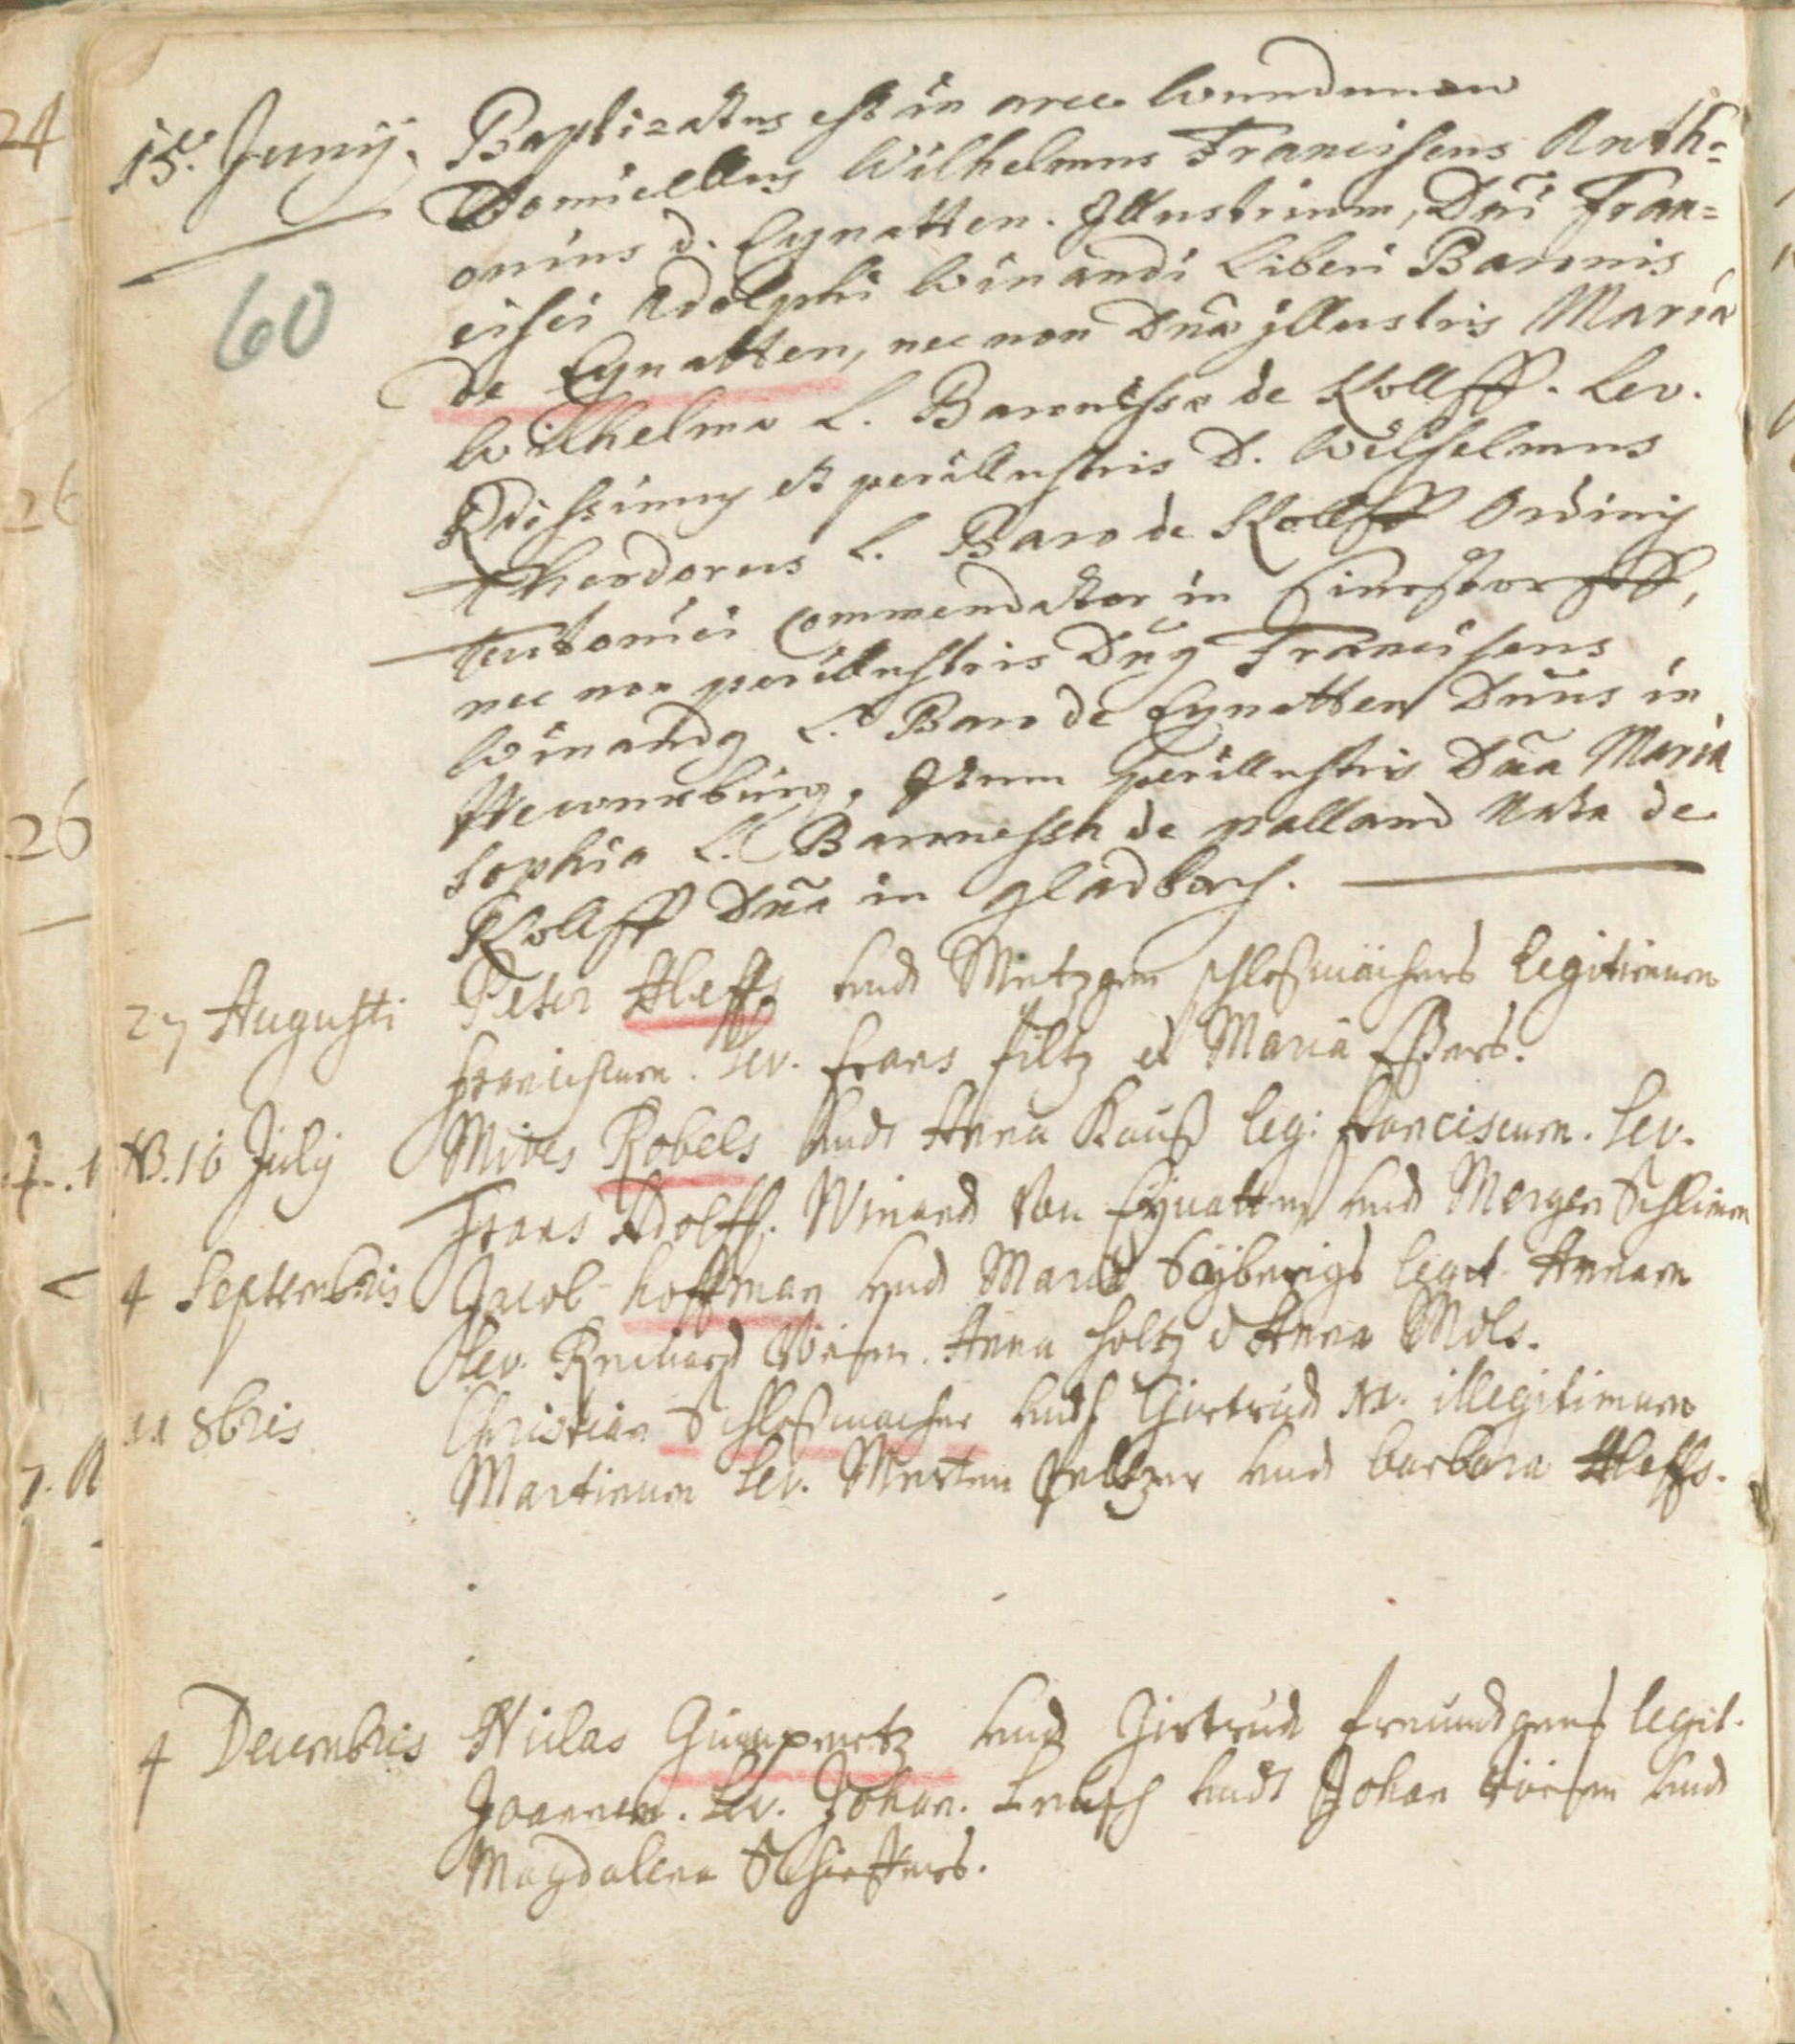 15. Junij. Baptizatus est in arce
Domicellus Wilhelmus Franciscus Anth=
onius d. Eynatten. Illustrium, Dni Fran=
cisci Adolphi Winandi Liberi Baronis
de Eynatten, nec non Dnæ illustris Mariæ
Wilhelmæ L. Baronissæ de Kolff. Lev.
Rdissimus et perillustris D. Wilhelmus
Theodorus L. Baro de Kolff Ordinis
Teutonici Commendator in
nec non perillustris Dnus Franciscus
Winandus L. Baro de Eynatten Dnus in
Item perillustris Dna Maria
Sophia L. Baronessa de palland Nata de
Kolff Dna in gladbach.
60
27 Augusti Peter Hleffs undt Metzgen schloßmächers legitimum
franciscum. Lev. frans filtz et Maria Eßers.
NB. 16 July Mives Robels undt Anna Rauß leg: franciscum. Lev.
Frans Adolff. Winand Von Eynatten und Mergen Schliem
4 Septembris Jacob hoffman und Maria legit Annam
Lev. Reinard Anna holtz et Anna Mols.
11 8bris Christian Schloßmacher undt Girtrud N. illegitimum
Martinum Lev. Merten peltzer und barbara Hleffs.
4 Decembris Niclas Gumpertz und Girtrud freundgens legit.
Joannem. Lev. Johan. undt Johan und
Magdalena
24
26
26